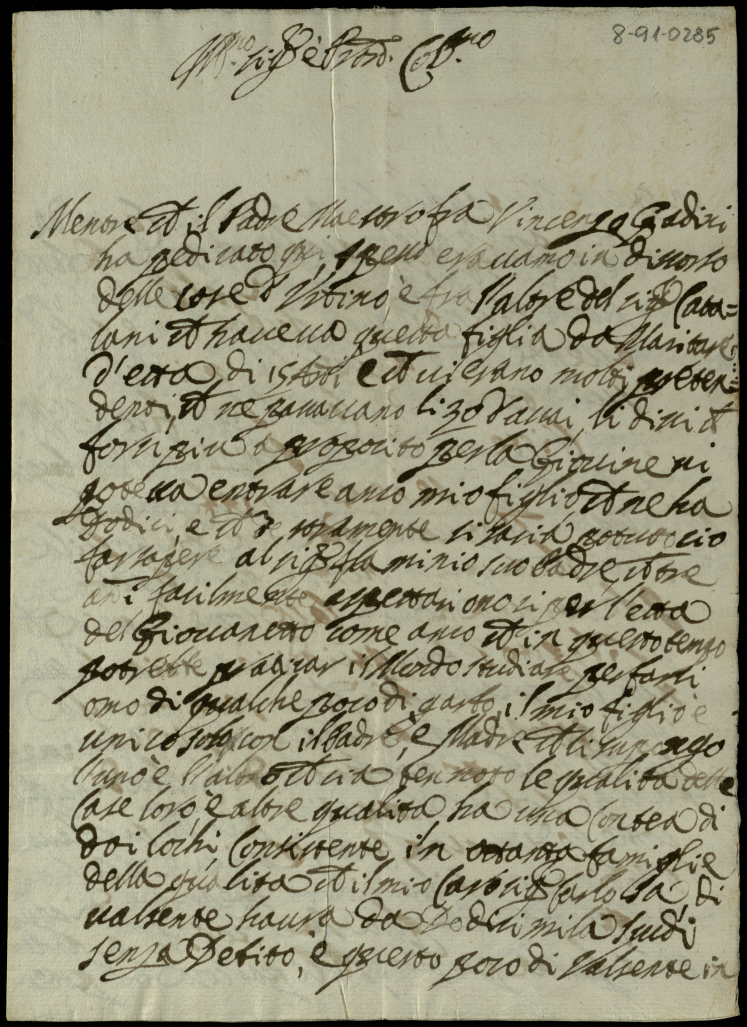 8-91-0285
Ill.mo sig.r è Pron. Col.mo
Mentre ch il Padre Maestro fra Vincenzo Gadini
ha predicato qui, spesso eravamo in discorso
delle cose d'Urbino è fra l'altre del sig.r Cata=
lani ch haveva questa figlia da Maritare
d'etta di 15 Anni e ch vi erano molti preten=
denti, ch ne passavano li 20 d'assai, li dissi ch
forsi più a proposito per la Giovine vi
poteva entrare anco mio figlio ch ne ha
Dodici, e ch destramente si saria potuto cio
far sapere al sig.r flaminio suo Padre ch tre
anni facilmente aspettariono si per l'etta
del Giovanetto come anco ch in questo tempo
potrebbe praticar il Mondo studiare per farsi
omo di qualche poco di garbo, il mio figlio è
unico solo con il Padre, e Madre ch li suppongo
l'uno è l'altro ch sia ben noto le qualita delle
Case loro, è altre qualita, ha una Contea di
doi lochi Consistente in ottanta famiglie
della qualita ch il mio Caro sig.r Carlo sa, di
valsente havra da Dodici mila scudi
senza Debito, è questo poco di Valsente in